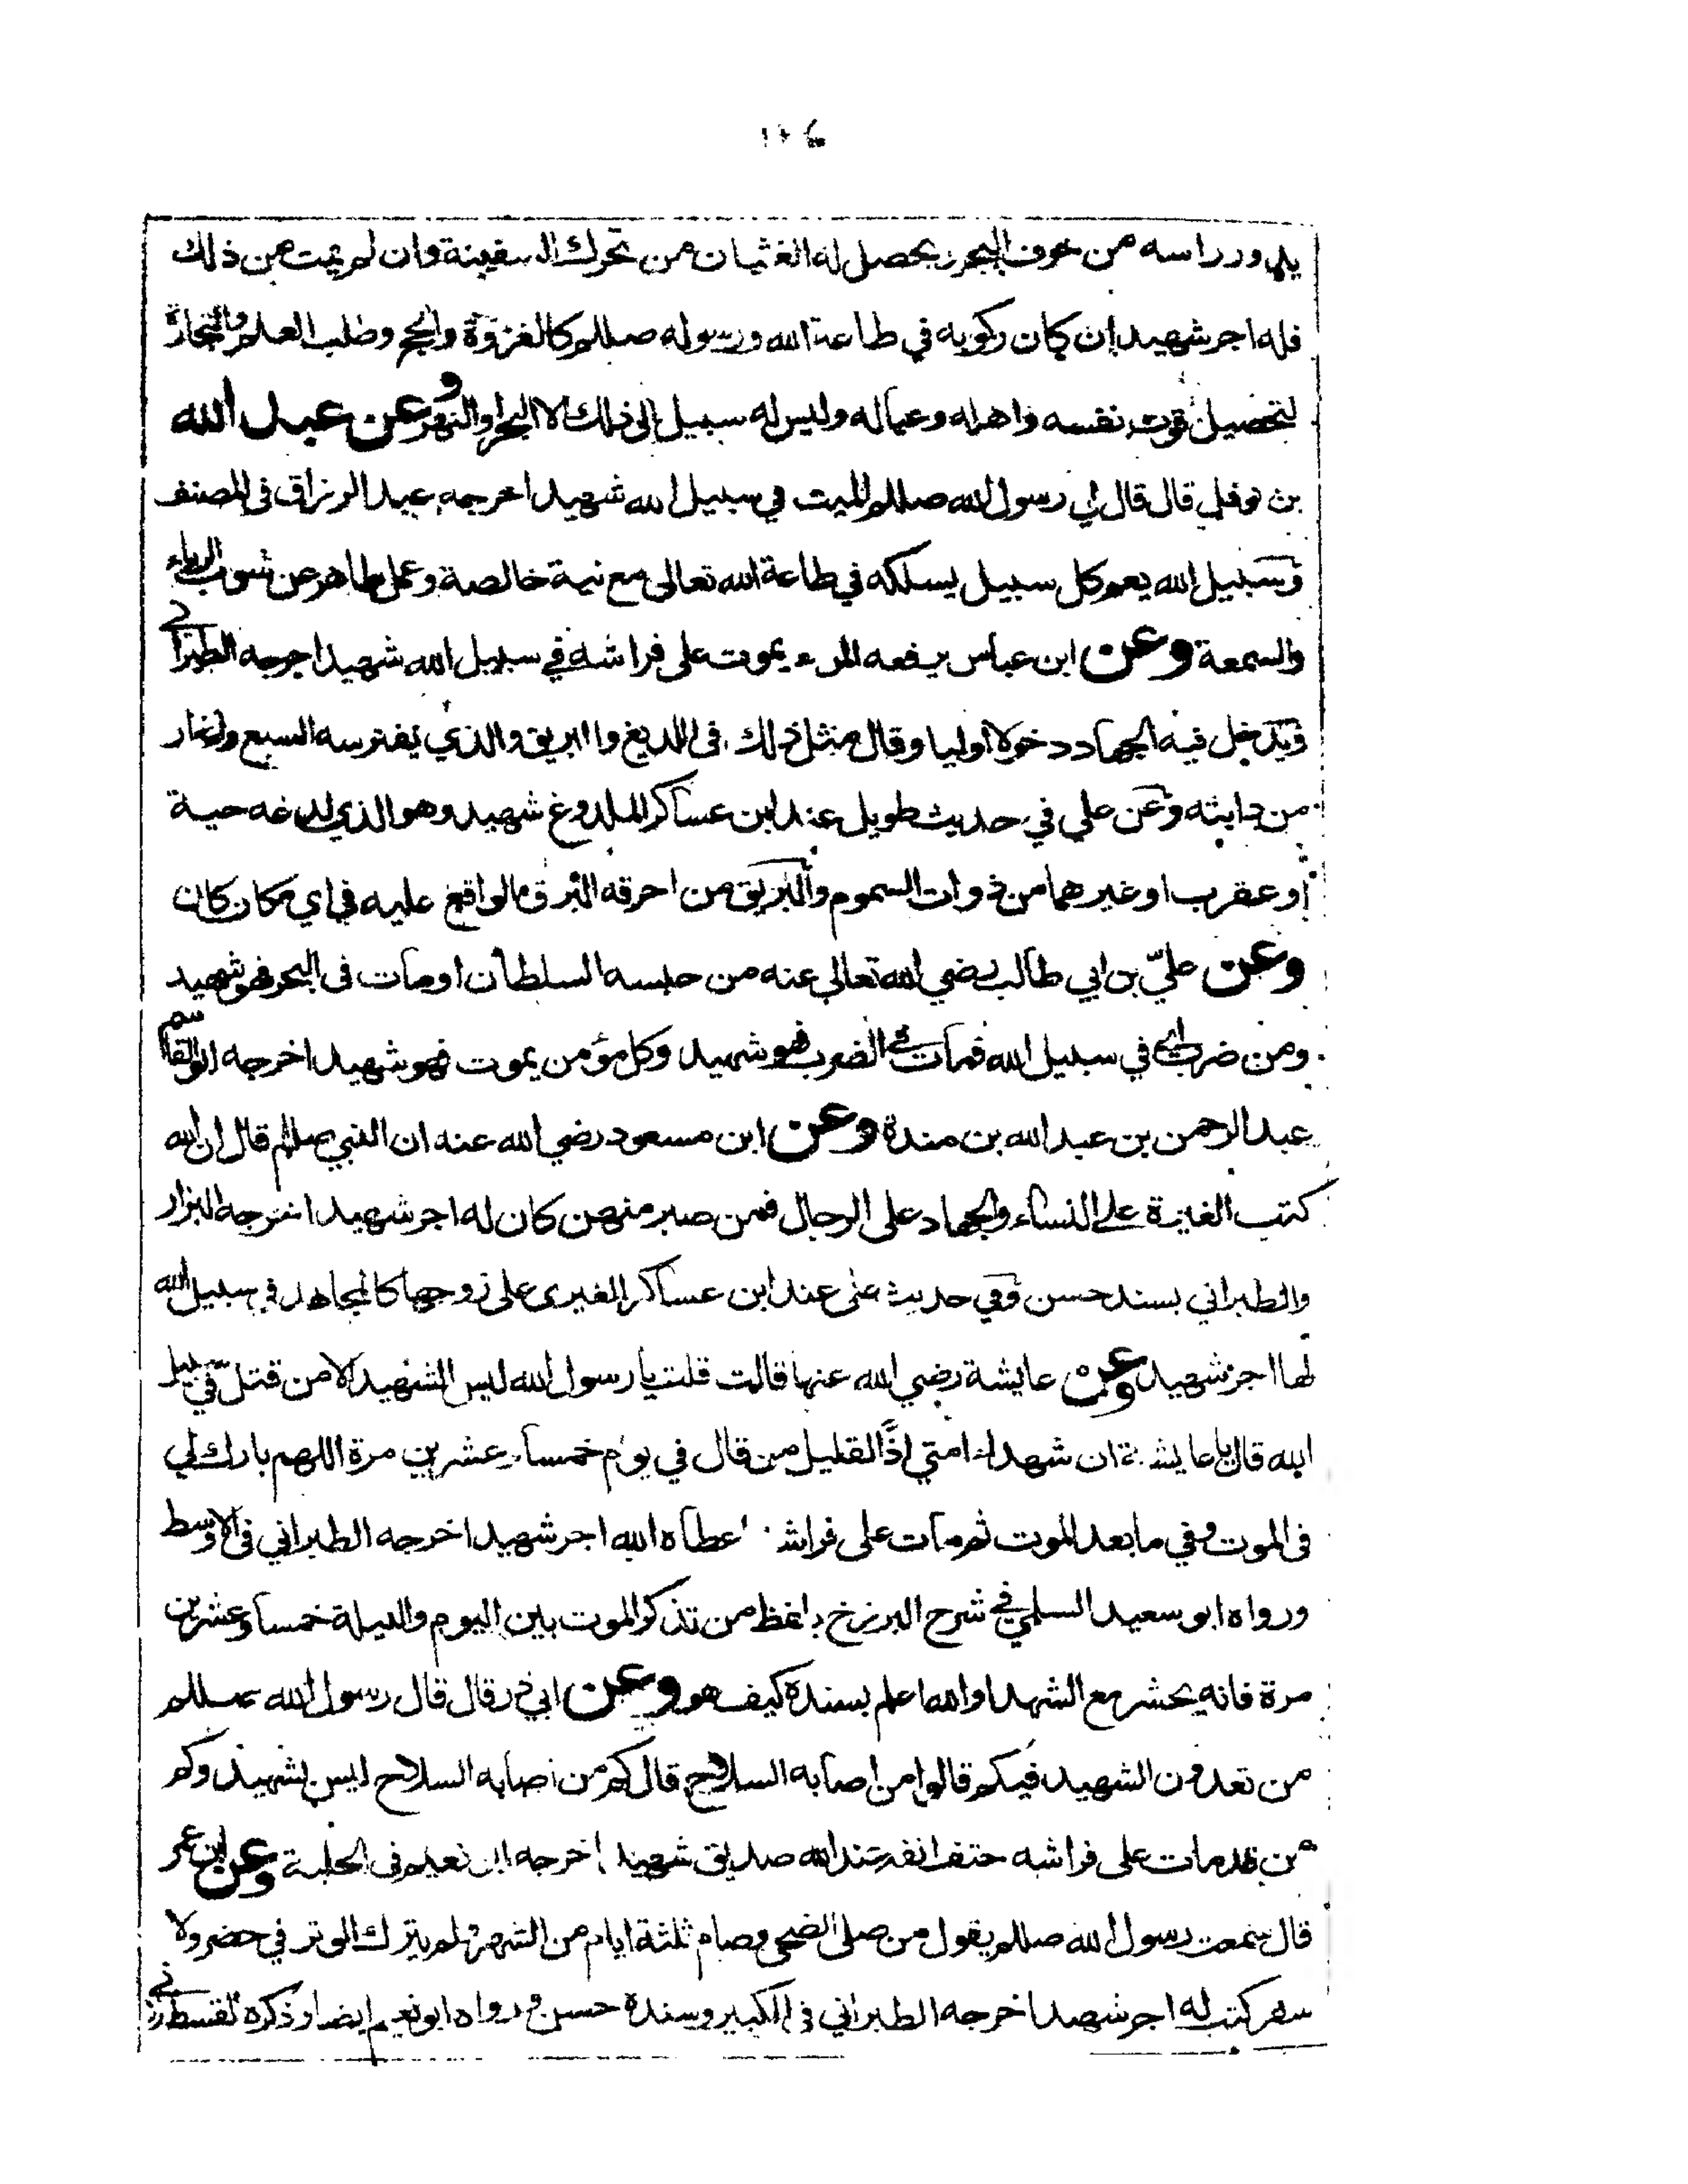 ١٠٤
يدور راسه من خوف البحر يحصل له الغثيان من تحرك السفينة وان لم يمت من ذلك
فله اجر شهيد ان كان ركوبه في طاعة الله ورسوله صللم كالغزوة والحج وطلب العلم والتجارة
لتحصيل قوت نفسه واهله وعياله وليس له سبيل الى ذلك الا البحر او النهر وعن عبد الله
بن نوفل قال قال لي رسول الله صللم الميت في سبيل الله شهيد اخرجه عبد الرزاق في المصنف
وسبيل الله يعم كل سبيل يسلكه في طاعة الله تعالى مع نية خالصة وعمل طاهر عن شوب الرياء
والسمعة وعن ابن عباس يرفعه المرء يموت على فراشه في سبيل الله شهيد اخرجه الطبراني
ويدخل فيه الجهاد دخولا اوليا وقال مثل ذلك في اللديغ والبريق والذي يفترسه السبع والخار
من دابته وعن علي في حديث طويل عند ابن عساكر الملدوغ شهيد وهو الذي لدغه حية
او عقرب او غيرهما من ذوات السموم والبريق من احرقه البرق الواقع عليه في اي مكان كان
وعن عليّ بن ابي طالب رضي الله تعالى عنه من حبسه السلطان او مات في البحر فهو شهيد
ومن ضرب في سبيل الله فمات في الضرب فهو شهيد وكل مؤمن يموت فهو شهيد اخرجه ابو القاسم
عبد الرحمن بن عبد الله بن مندة وعن ابن مسعود رضي الله عنه ان النبي صللم قال ان الله
كتب الغيرة على النساء والجهاد على الرجال فمن صبر منهن كان له اجر شهيد اخرجه البزار
والطبراني بسند حسن وفي حديث علي عند ابن عساكر الغيرى على زوجها كالمجاهد في سبيل الله
لها اجر شهيد وعن عايشة رضي الله عنها قالت قلت يا رسول الله ليس الشهيد الا من قتل في سبيل
الله قال يا عايشة ان شهداء امتي اذًا لقليل من قال في يوم خمسا وعشرين مرة اللهم بارك لي
في الموت وفي ما بعد الموت ثم مات على فراشه اعطاه الله اجر شهيد اخرجه الطبراني في الاوسط
ورواه ابو سعيد السلمي في شرح البرزخ بلفظ من تذكر الموت بين اليوم والليلة خمسا وعشرين
مرة فانه يحشر مع الشهدا والله اعلم بسنده كيف هو وعن ابي ذر قال قال رسول الله صللم
من تعدون الشهيد فيكم قالوا من اصابه السلاح قال كم من اصابه السلاح ليس بشهيد وكم
من قد مات على فراشه حتف انفه عند الله صديق شهيد اخرجه ابو نعيم في الحلية وعن ابن عمر
قال سمعت رسول الله صللم يقول من صلى الضحى وصام ثلثة ايام من الشهر ولم يترك الوتر في حضر ولا
سفر كتب له اجر شهيد اخرجه الطبراني في الكبير وسنده حسن ورواه ابو نعيم ايضا وذكره القسطلاني